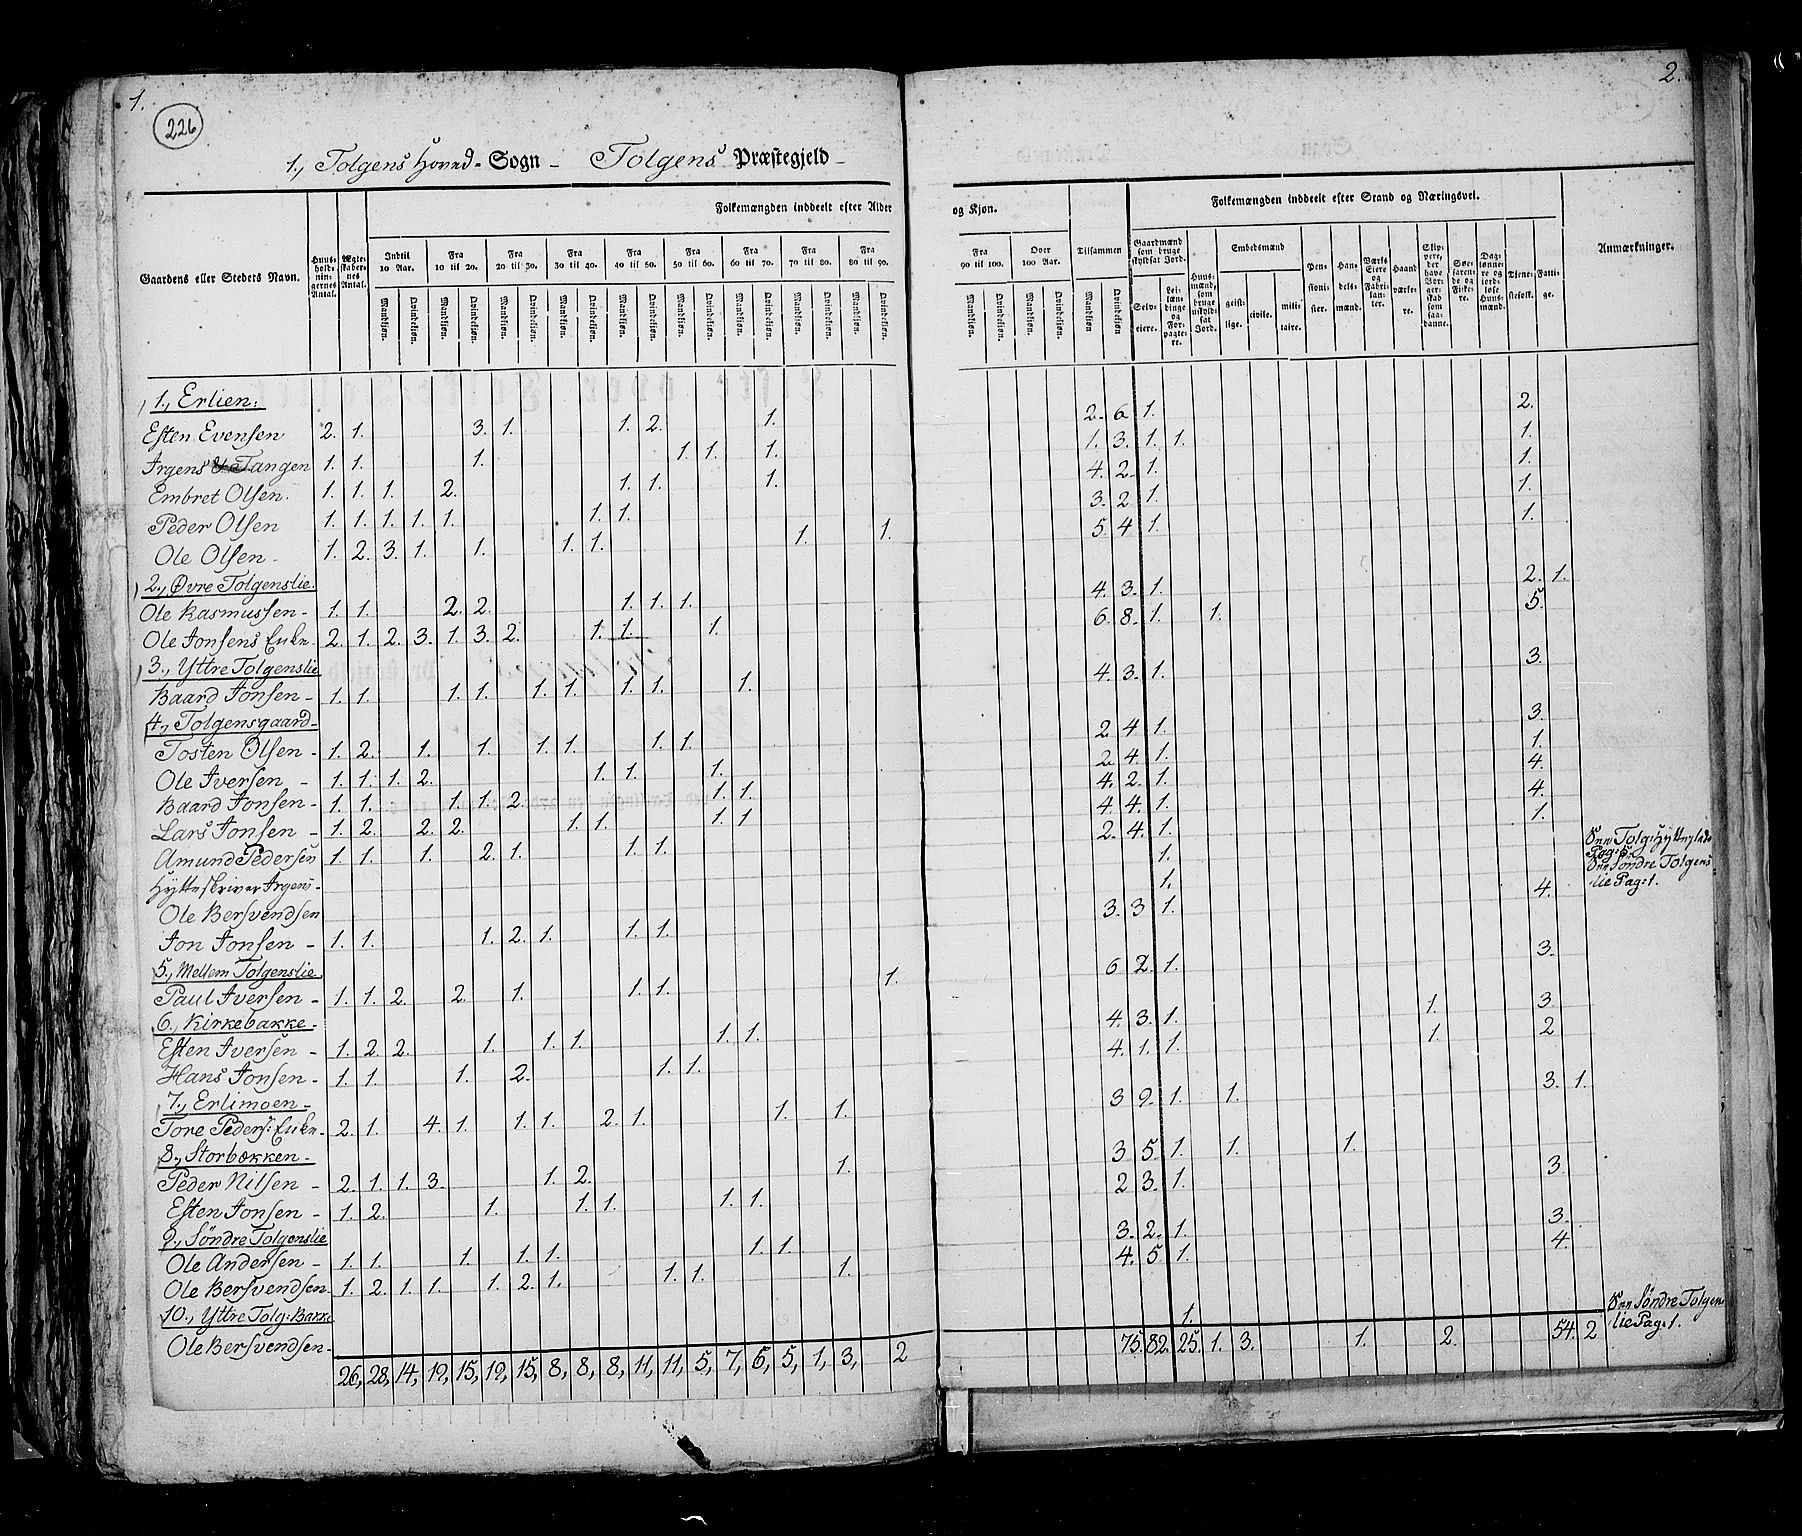 1.
226
2.
1., Tolgens Hoved- Sogn - Tolgens Præstegjeld -
Gaardens eller Steders Navn.
Huus-holdnin-gernes Antal.
Ægte-skaber-nes Antal.
Folkemængden inddeelt efter Alder og Kjøn.
Indtil 10 Aar. Fra 10 til 20. Fra 20 til 30. Fra 30 til 40. Fra 40 til 50. Fra 50 til 60. Fra 60 til 70. Fra 70 til 80. Fra 80 til 90. Fra 90 til 100. Over 100 Aar. Tilsammen
Mandkjøn. Qvindekjøn.
Folkemængden inddeelt efter Stand og Næringsvei.
Gaardmænd som bruge skyldsat Jord.
Selv-eiere. Lei-lændinge og For-pagte-re.
Huus-mænd, som bruge uskyld-sat Jord.
Embedsmænd
geist-lige. civile. mili-taire.
Pen-sioni-ster. Han-dels-mænd. Værks Eiere og Fabri-kanter. Haand-værke-re. Søe-farende og Fiske-re. Dag-lønne-re og jord-løse Huus-mænd. Tjene-stefolk. Fatti-ge.
Anmærkninger.
1., Erlien:
Esten Evensen 2. 1. 3. 1. 1. 2. 1. 2. 6. 1. 2.
Irgens Tangen 1. 1. 1. 1. 1. 1. 1. 3. 1. 1. 1.
Embret Olsen. 1. 1. 1. 2. 1. 1. 1. 4. 2. 1. 1.
Peder Olsen 1. 1. 1. 1. 1. 1. 1. 3. 2. 1. 1.
Ole Olsen - 1. 2. 3. 1. 1. 1. 1. 1. 1. 5. 4. 1. 1.
2., Øvre Tolgenslie.
Ole Rasmussen - 1. 1. 2. 2. 1. 1. 1. 4. 3. 1. 2. 1.
Ole Jonsens Enke - 2. 1. 2. 3. 1. 3. 2. 1. 1. 1. 6. 8. 1. 1. 5.
3., Yttre Tolgenslie
Baard Jonsen - 1. 1. 1. 1. 1. 1. 1. 1. 1. 4. 3. 1. 3.
4., Tolgensgaard -
Tosten Olsen - 1. 2. 1. 1. 1. 1. 1. 1. 2. 4. 1. 3.
Ole Iversen - 1. 1. 1. 2. 1. 1. 1. 2. 4. 1. 1.
Baard Jonsen - 1. 1. 1. 1. 2. 1. 1. 4. 2. 1. 4.
Lars Jonsen - 1. 2. 2. 2. 1. 1. 1. 1. 4. 4. 1. 4.
Amund Pedersen 1. 1. 1. 2. 1. 1. 1. 2. 4. 1. 1.
Hytteskriver Irgens - 1. Tolg: Hytteplads Pag: 5.
Ole Bersvendsen 1. Søndre Tolgens lie Pag: 1.
Jon Jonsen - 1. 1. 1. 2. 1. 1. 1. 3. 3 1. 4.
5., Mellem Tolgenslie.
Paul Iversen - 1. 1. 2. 2. 1. 1. 1. 1. 6 2. 1. 3.
6., Kirkebakke -
Esten Iversen - 1. 2. 2. 1. 1. 1. 1. 1. 4. 3. 1. 1. 3.
Hans Jonsen - 1. 1. 1. 2. 1. 1. 4. 1. 1. 1. 2
7., Erlimoen -
Tore Peders: Enke - 2. 1. 4. 1. 1. 1. 2. 1. 1. 1. 3 9. 1. 1. 3. 1.
8., Storbækken -
Peder Nilsen - 2. 1. 1. 3. 1. 2. 1. 3 5. 1. 1. 1.
Esten Jonsen - 1. 2. 1. 1. 1. 1. 1. 2 3. 1. 3.
9., Søndre Tolgenslie
Ole Andersen - 1. 1. 1. 1. 1. 1. 1. 3. 2. 1. 3.
Ole Bersvendsen - 1. 2. 1. 1. 1. 2. 1. 1. 1. 1. 4. 5 1. 4.
10., Yttre Tolg: Bakke
Ole Bersvendsen - 1. Søndre Tolgens lie Pag: 1.
26, 28, 14, 19, 15, 19, 15, 8, 8, 8, 11, 11, 5, 7, 6, 5, 1, 3, 2 75. 82. 25. 1. 3. 1. 2. 54. 2